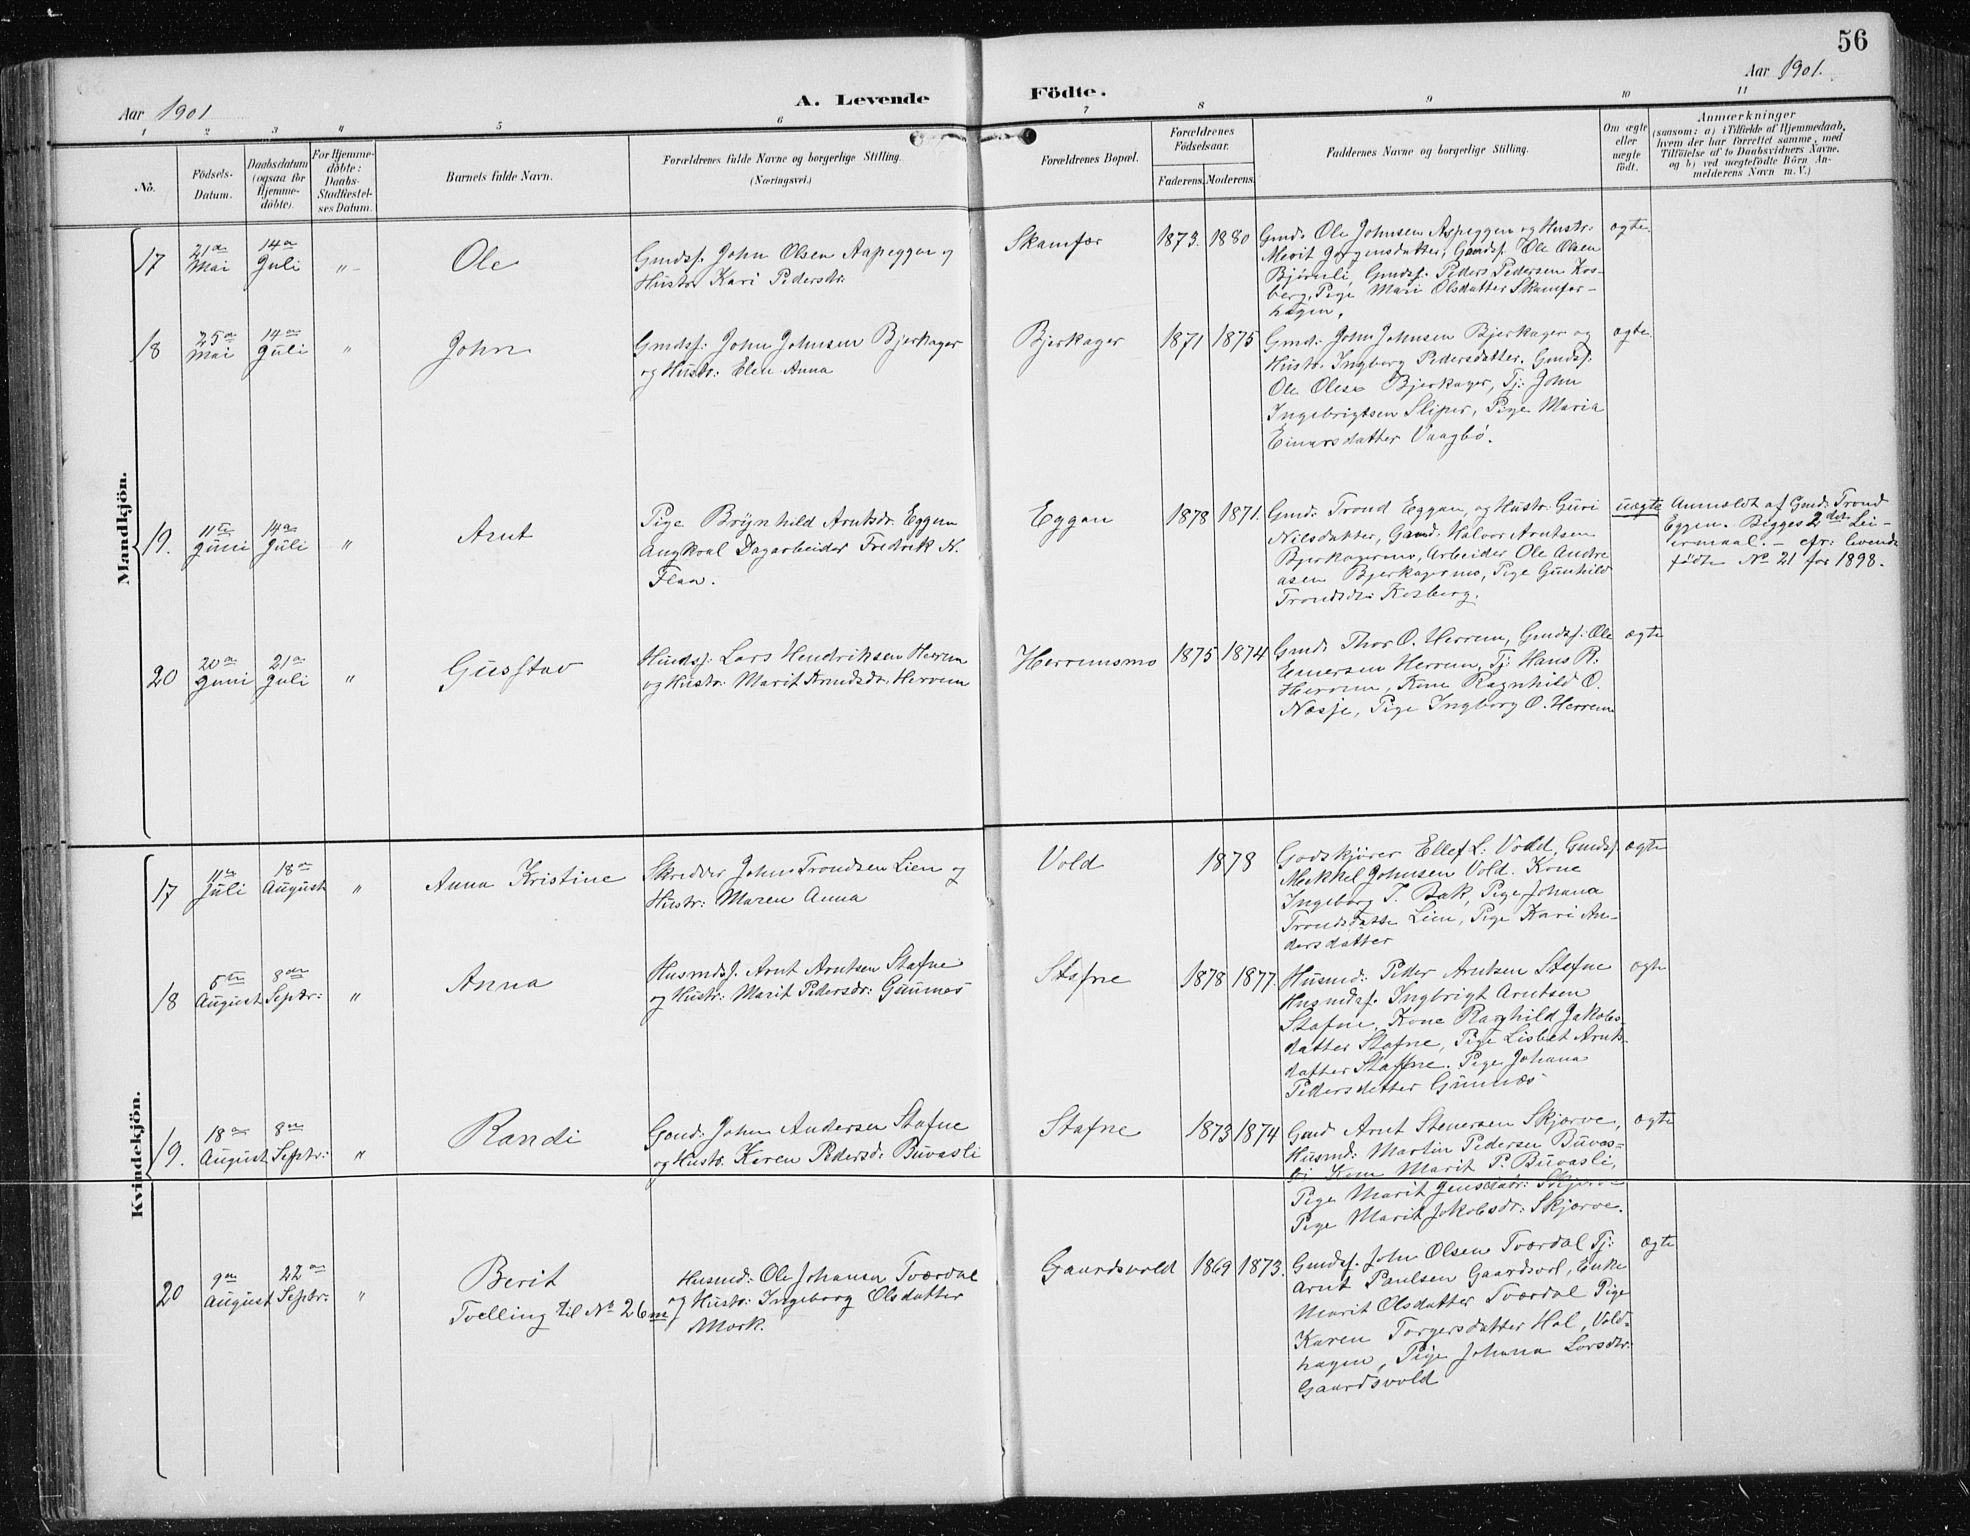 56
Aar 1901
A. Levende Födte.
Aar 1901.
1 2 3 4 5 6 7 8 9 10 11
No.
Födsels-
Datum.
Daabsdatum
(ogsaa for
Hjemme-
döbte).
For Hjemme-
döbte:
Daabs-
Stadfæstel-
ses Datum.
Barnets fulde Navn.
Forældrenes fulde Navne og borgerlige Stilling.
(Næringsvei.)
Forældrenes Bopæl.
Forældrenes
Födselsaar.
Faderens. Moderens.
Faddernes Navne og borgerlige Stilling.
Om ægte
eller
uægte
födt.
Anmærkninger
(saasom: a) i Tilfælde af Hjemmedaab,
hvem der har forrettet samme, med
Tilföielse af to Daabsvidners Navne,
og b) ved uægtefödte Börn An-
melderens Navn m. V.)
Mandkjön.
17
21de
Mai
14de
Juli
"
Ole
Gmdsf. John Olsen Aspeggen og
Hustr: Kari Pedersdr:
Skamfær
1873. 1880
Gmd: Ole Johnsen Aspeggen og Hustr:
Merit Jørgensdatter, Gmdsf. Ole Olsen
Bjørnli, Gmdsf. Peders Pedersen Kos-
berg, Pige Mari Olsdatter Skamfær-
hagen.
ægte
18
25de
Mai
14de
Juli
"
John
Gmdsf: John Johnsen Bjerkager
og Hustr: Elen Anna
Bjerkager
1871 1875
Gmd: John Johnsen Bjerkager og
Hustr. Ingborg Pedersdatter. Gmdsf:
Ole Olsen Bjerkager, Tj: John
Ingebrigtsen Sliper, Pige Maria
Einarsdatter Vaagbø.
ægte
19.
11te
Juni
14de
Juli
"
Arnt
Pige Brynhild Arntsdr. Eggen
Ungkarl Dagarbeider Fredrik N.
Flaa.
Eggen
1878 1871.
Gmd: Trond Eggan, og Hustr: Guri
Nilsdatter, Gmd: Halvor Arntsen
Bjerkagermo, Arbeider Ole Andre
asen Bjerkagermo, Pige Gunhild
Trondsdr: Kosberg.
uægte
Anmeldt af Gmd: Trond
Eggen. Bigges 2det Lei-
ermaal. - cfr: levende
födte No 21 for 1898.
20
20de
Juni
21de
Juli
"
Gusstav
Husdsf: Lars Hendriksen Herrem
og Hustr: Marit Arndsdr. Herrem
Herremsmo
1875 1874
Gmd: Thor O. Herrem, Gmdsf: Ole
Einersen Herrem, Tj: Hans R.
Herrem, Kone Ragnhild O.
Næsje, Pige Ingborg O. Herrem
ægte
Kvindekjön.
17
11te
Juli
18de
August
"
Anna Kristine
Skredder John Trondsen Lien og
Hustr: Maren Anna
Vold
1878
Godskjører Ellef L: Vold, Gmdsf.
Mekkel Johnsen Vold. Kone
Ingeborg T. Bak, Pige Johana
Trondsdatte Lien, Pige Kari An-
dersdatter
ægte
18
5te
August
8de
Septr:
"
Anna
Husmdsf. Arnt Arntsen Stafne
og Hustr: Marit Pedersdr: Gunnes
Stafne
1878 1877.
Husmd: Peder Arntsen Stafne
Husmdsf. Ingbrigt Arntsen
Stafne, Kone Ragnhild Jakobs-
datter Stafne, Pige Lisbet Arnts-
datter Staffne. Pige Johana
Pedersdatter Gunnæs
ægte
19.
18de
August
8de
Septr:
"
Randi
Gmd: John Andersen Stafne
og Hustr. Karen Pedersdr. Buvasli
Stafne
1873 1874
Gmd Arnt Stenersen Skjærve,
Husmd: Martin Pedersen Buvas-
li Kone Marit P. Buvasli,
Pige Marit Jensdatr: Skjærve
Pige Marit Jakobsdr: Skjærve.
ægte
20
9de
August
22de
Septr:
"
Berit
Tvelling til No 26 m
Husmd: Ole Johansen Tværdal
og Hustr: Ingeborg Olsdatter
Mærk.
Gaardsvold
1869 1873.
Gmdsf. John Olsen Tværdal Tj:
Arnt Paulsen Gaardsvol, Enke
Marit Olsdatter Tværdal Pige
Karen Torgersdatter Hol, Vold-
hagen, Pige Johana Larsdtr:
Gaardsvold
ægte